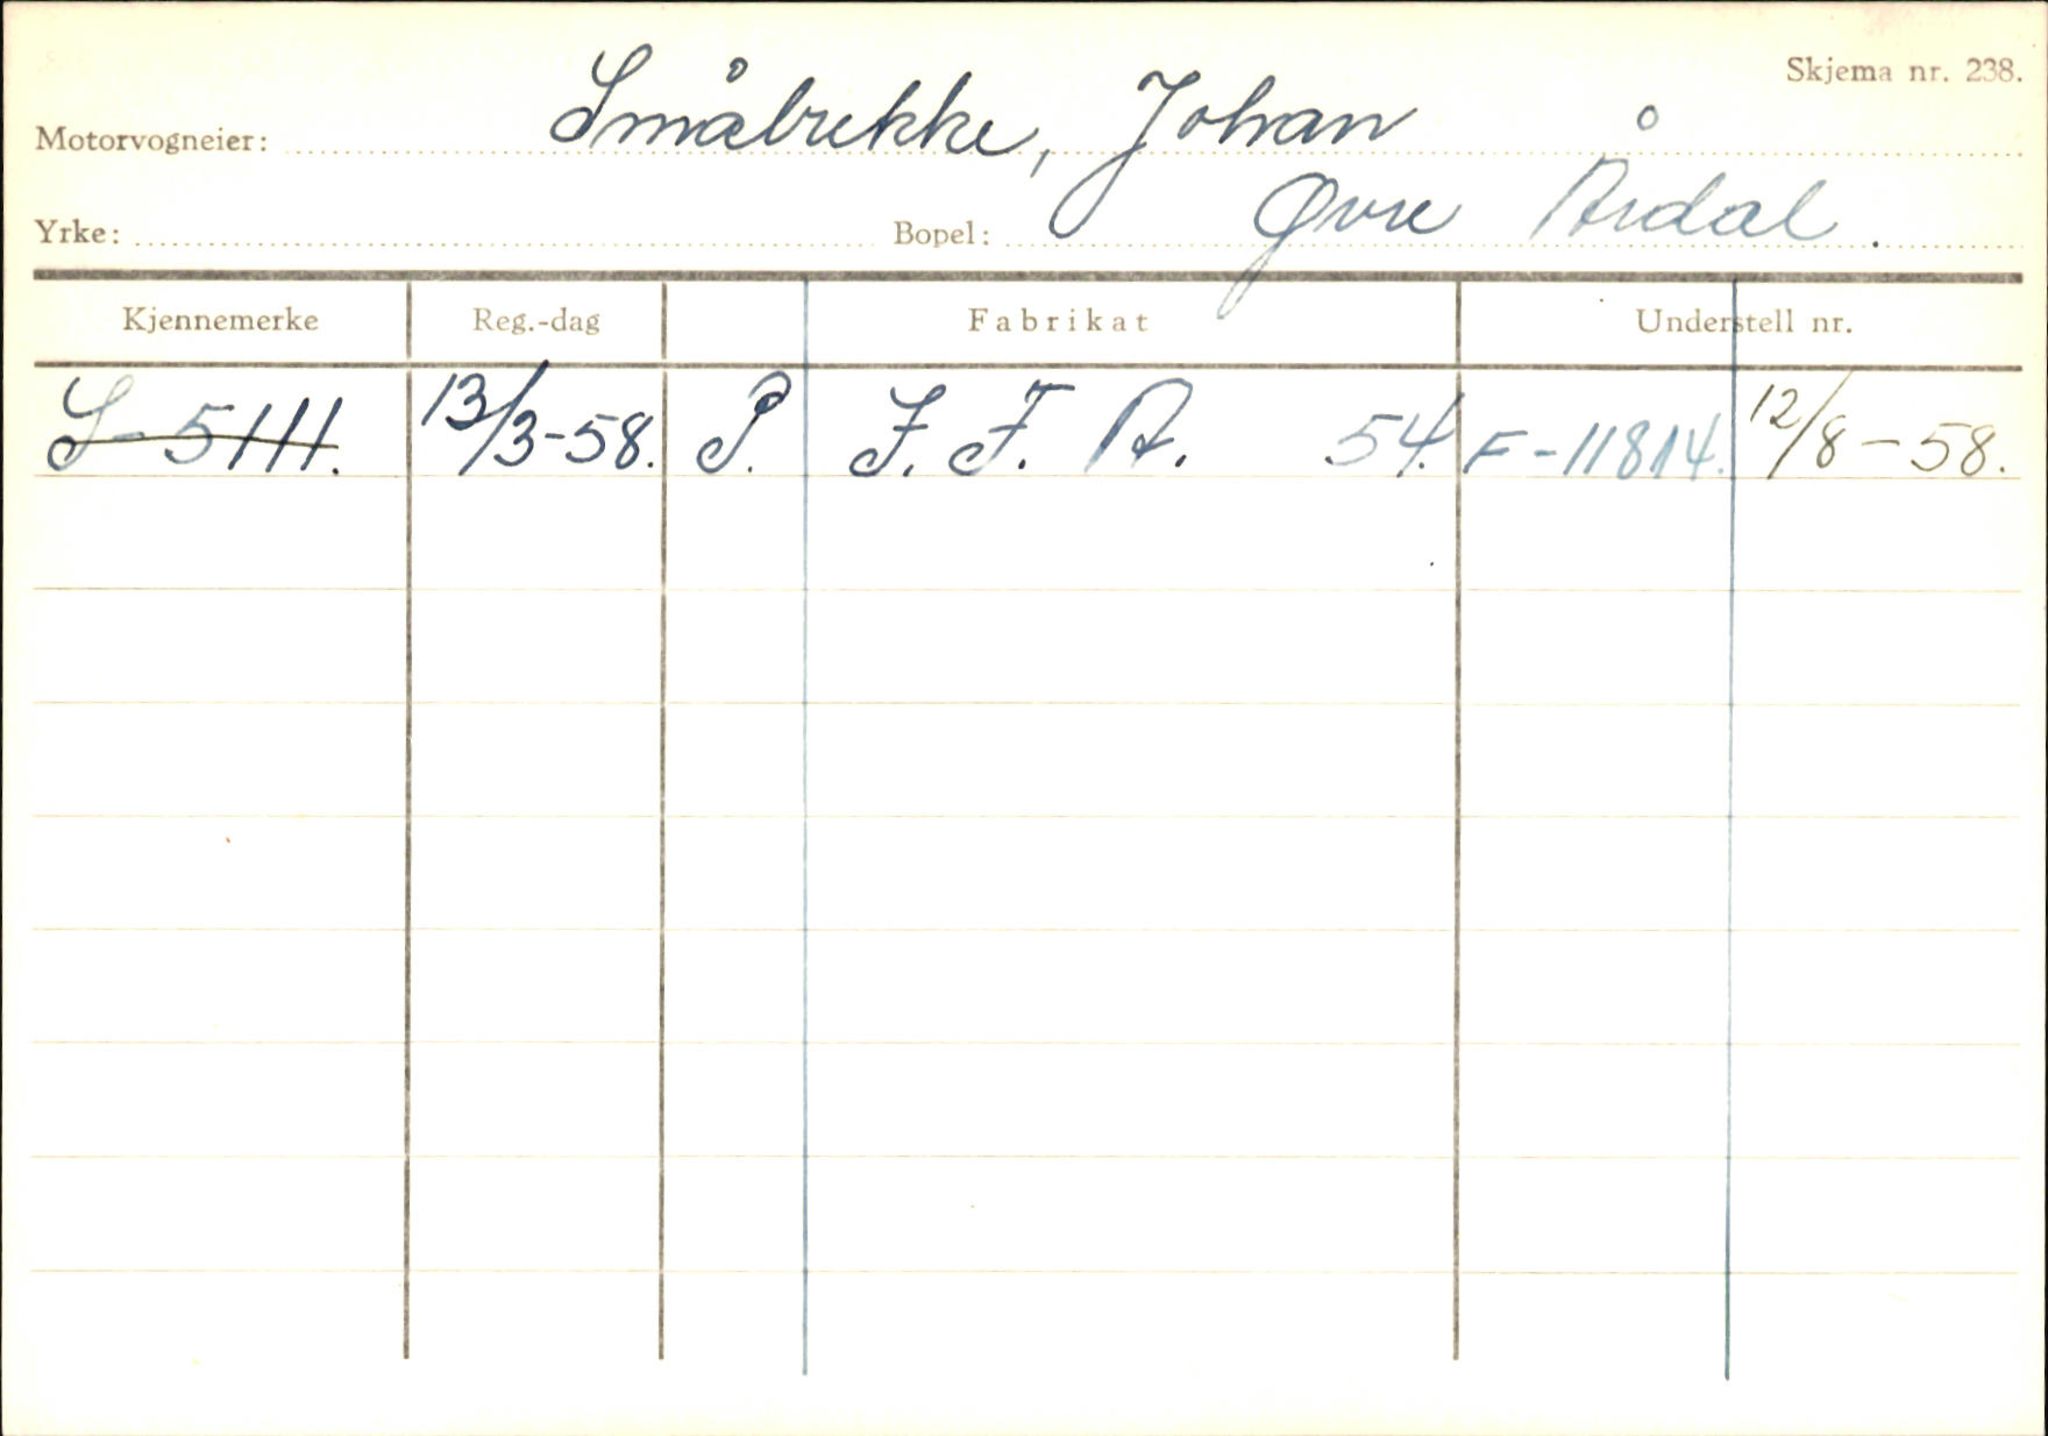 Skjema nr. 238.
Motorvogneier: Småbrekke, Johan
Yrke: Bopel: Øvre Årdal.
Kjennemerke Reg.-dag Fabrikat Understell nr.
S-5111. 13/3-58. P. I. F. A. 54. F-11814. 12/8-58.